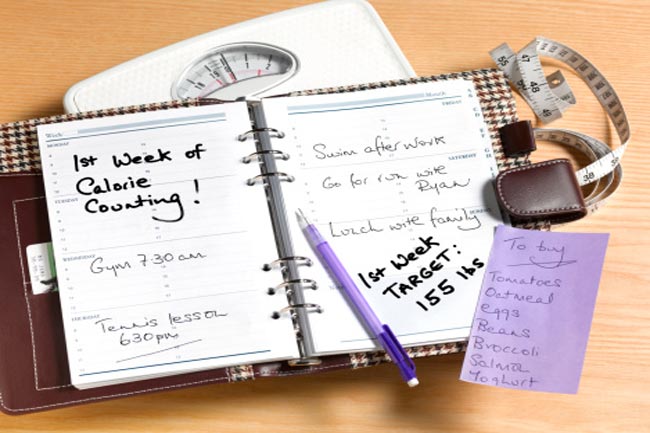 Week
MONDAY
1st Week of
Calorie
Counting!
TUESDAY
WEDNESDAY
Gym 7:30 am
THURSDAY
Tennis lesson
6:30pm
Month
FRIDAY
Swim after work
SATURDAY
Go for run with
Ryan
SUNDAY
Lunch with family
1st Week
TARGET:
155 lbs
To buy
Tomatoes
Oatmeal
eggs
Beans
Broccoli
Salmon
Yoghurt